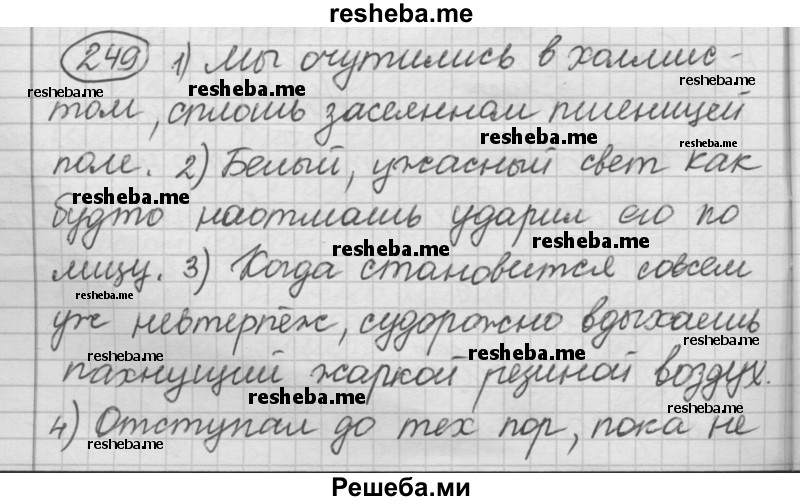 resheba.me
249 1) Мы очутились в холмис-
resheba.me resheba.me resheba.me
том, сплошь засеянном пшеницей
resheba.me resheba.me
поле. 2) Белый, ужасный свет как
resheba.me
будто наотмашь ударил его по
resheba.me resheba.me
лицу. 3) Когда становится совсем
resheba.me
уж невтерпёж, судорожно вдыхаешь
resheba.me resheba.me
пахнущий жаркой резиной воздух.
resheba.me resheba.me
4) Отступал до тех пор, пока не
resheba.me
Решеба.ми